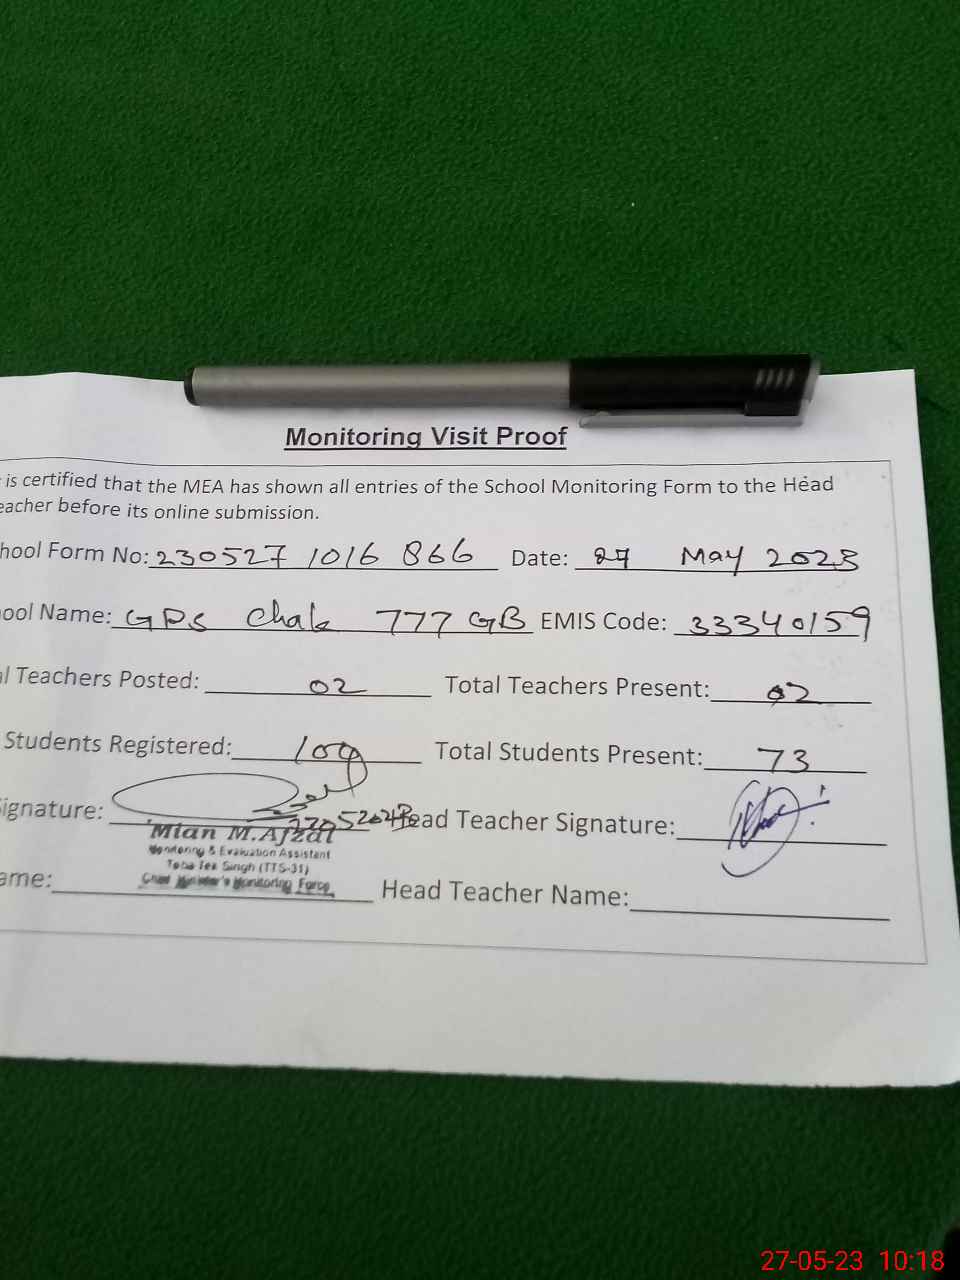 Monitoring Visit Proof
is certified that the MEA has shown all entries of the School Monitoring Form to the Head
eacher before its online submission.
hool Form No: 230527 1016 866 Date: 27 May 2023
ool Name: GPS Chak 777 GB EMIS Code: 33340159
l Teachers Posted: 02 Total Teachers Present: 02
Students Registered: 109 Total Students Present: 73
ignature: Head Teacher Signature:
Mian M.Afzal
Monitoring & Evaluation Assistant
Toba Tek Singh (TTS-31)
Chief Minister's Monitoring Force
ame: Head Teacher Name:
27-05-23 10:18